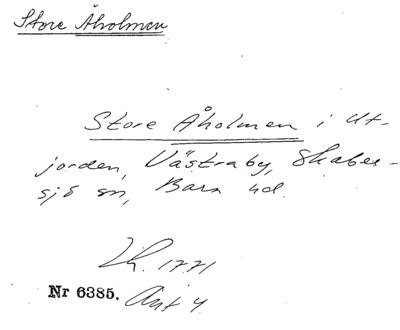 Store Åholmen
Store Åholmen i Ut-
jorden, Västraby, Skaber-
sjö sn, Bara hd.
Lh. 1771
Nr 6385. Akt 4